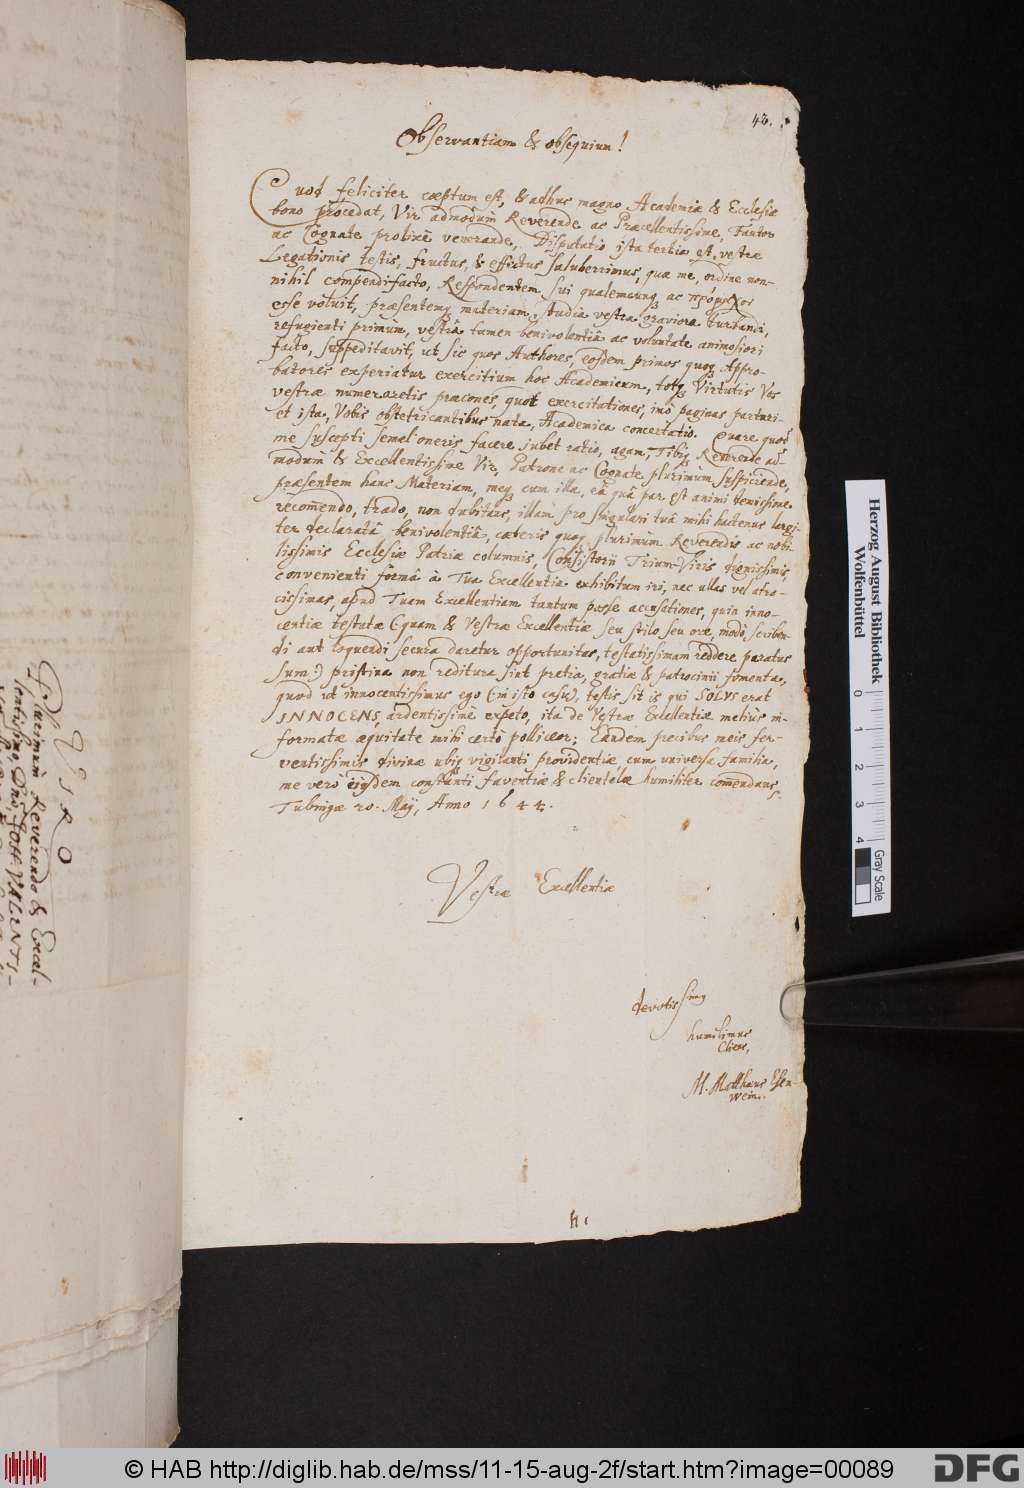 43.
Observantiam & obsequium!
Quod feliciter cœptum est, & adhuc magno Academiæ & Ecclesiæ
bono procedat, Vir admodùm Reverende ac Præcellentissime, Fautor
ac Cognate probinè venerande, Disputatio ista tertia est, vestræ
Legationis testis, fructus, & effectus saluberrimus, quæ me, ordine non-
nihil compendifacto, Respondentem sui qualemcunq ac
esse voluit, præsentemq materiam, studia vestra graviora turbandi,
refugienti primùm, vestrâ tamen benivolentiâ ac voluntate animosiori
facto, suppeditavit, ut sic quos Authores, eosdem primos quoq Appro-
batores experiatur exercitium hoc Academicum, totq Virtutis Vos
vestræ numeraretis præcones, quot exercitationes, imò paginas parturi-
et ista, Vobis obstetricantibus nata, Academica concertatio. Quare quod
me suscepti semel oneris facere jubet ratio, agam, Tibiq Reverende ad-
modum & Excellentissime Vir, Patrone ac Cognate plurimùm suspiciende,
præsentem hanc Materiam, meq cum illa, eâ quâ par est animi demissione
recomendo, trado, non dubitans, illam pro singulari tuâ mihi hactenus largi-
ter declaratâ benivolentiâ, cæteris quoq plurimùm Reverendis ac nobi-
lissimis Ecclesiæ Patriæ columnis, Consistorii Trium-Viris dignissimis,
convenienti formâ à Tua Excellentia exhibitum iri, nec ullas vel atro-
cissimas, apud Tuam Excellentiam tantum posse accusationes, quin inno-
centiæ testatæ (quam & Vestræ Excellentiæ seu stilo seu ore, modò scriben-
di aut loquendi secura daretur opportunitas, testatissimam reddere paratus
sum:) pristina non reditura sint pretia, gratiæ & patrocinii fomenta,
quod ut innocentissimus ego (in isto casu), testis sit is qui SOLUS erat
INNOCENS, ardentissimè expeto, ita de Vestræ Excellentiæ meliùs in-
formatæ æquitate mihi certò polliceor; Eandem precibus meis fer-
ventissimis divinæ ubiq vigilanti providentiæ, cum universa familia,
me verò eiusdem constanti faventiæ & clientelæ humiliter comendans
Tubingæ 20. Maij, Anno 1644.
Vestræ Excellentiæ
devotissimq
humilimus
Cliens,
M. Matthæus Esen-
wein.
VIRO
Plurimùm Reverendo & Excel-
lentissimo, Dno, JOH. VALENTI-
Herzog August Bibliothek
Wolfenbüttel
0 1 2 3 4
Gray Scale
© HAB http://diglib.hab.de/mss/11-15-aug-2f/start.htm?image=00089
DFG